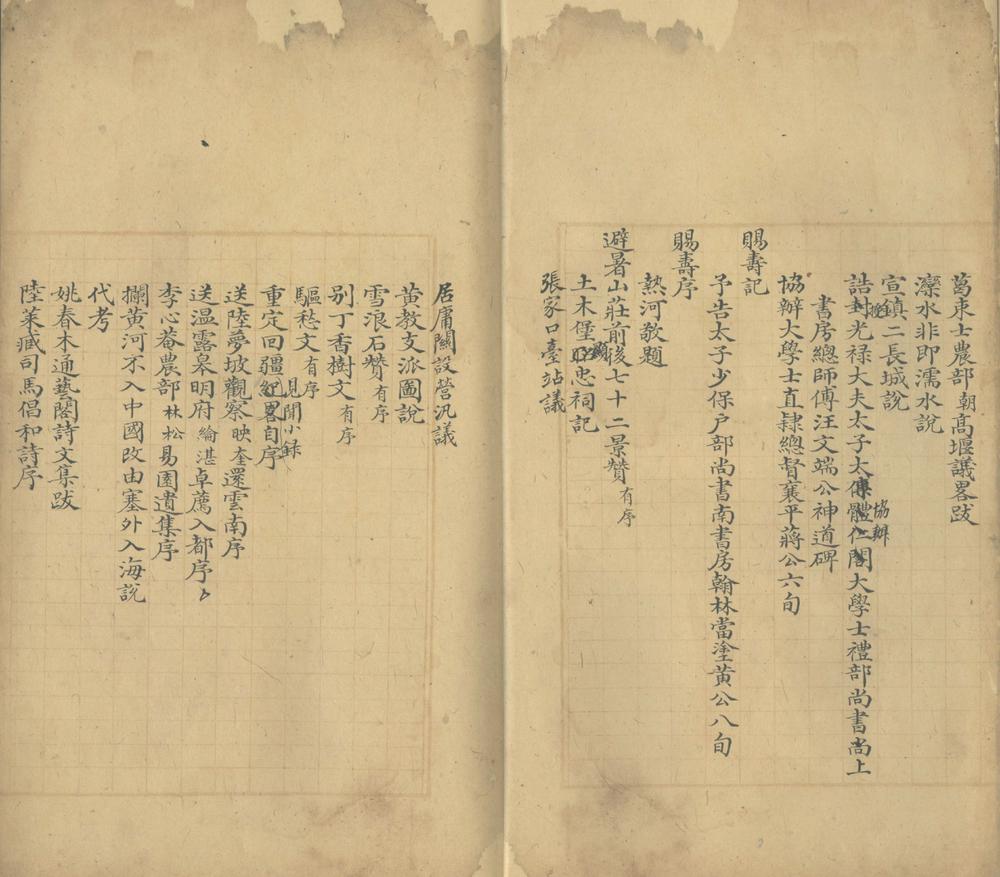 葛東士農部朝高堰議畧跋
灤水非即濡水說
宣鎮二長城說
誥封光禄大夫太子太傅體仁閣大學士禮部尚書尚上
協辦
書房總師傅汪文端公神道碑
協辦大學士直隸總督襄平蔣公六旬
賜壽記
予告太子少保户部尚書南書房翰林當塗黄公八旬
賜壽序
熱河敬題
避暑山莊前後七十二景贊有序
土木堡忠祠記
張家口臺站議
居庸關設營汛議
黄教支派圖說
雪浪石贊有序
别丁香樹文有序
驅愁文有序
見聞小録
重定回疆自序
送陸夢坡觀察映奎還雲南序
送温露皋明府綸湛卓薦入都序
李心菴農部林松易園遺集序
攔黄河不入中國改由塞外入海說
代考
姚春木通藝閣詩文集跋
陸萊臧司馬倡和詩序